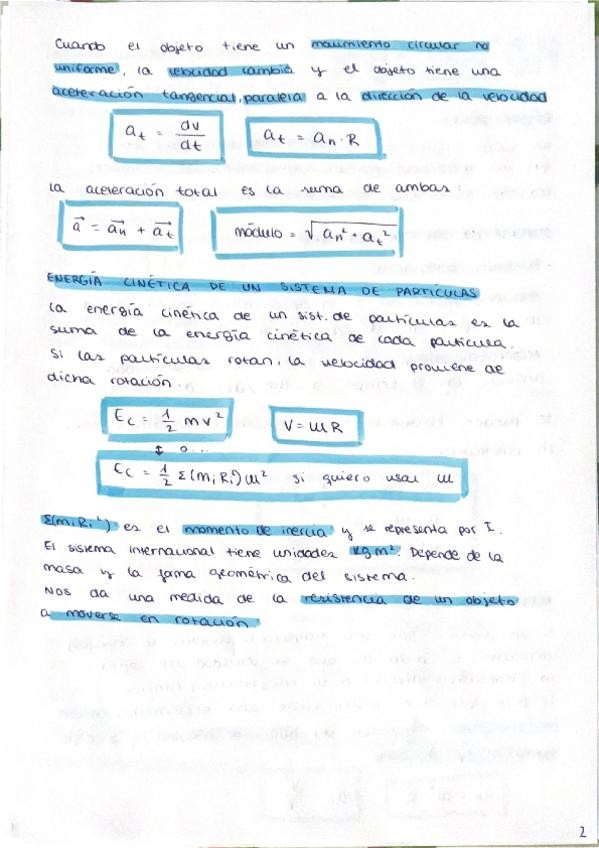 Cuando el objeto tiene un movimiento circular no
uniforme, la velocidad cambia y el objeto tiene una
aceleración tangencial, paralela a la dirección de la velocidad
at = dv/dt at = an · R
la aceleración total es la suma de ambas:
a⃗ = a⃗n + a⃗t módulo = √(an² + at²)
ENERGÍA CINÉTICA DE UN SISTEMA DE PARTÍCULAS
La energía cinética de un sist. de partículas es la
suma de la energía cinética de cada partícula.
Si las partículas rotan, la velocidad proviene de
dicha rotación.
Ec = 1/2 mv² V = ωR
↕ o...
Ec = 1/2 Σ(mi Ri²) ω² si quiero usar ω
Σ(mi Ri²) es el momento de inercia y se representa por I.
El sistema internacional tiene unidades kg m². Depende de la
masa y la forma geométrica del sistema.
Nos da una medida de la resistencia de un objeto
a moverse en rotación.
2